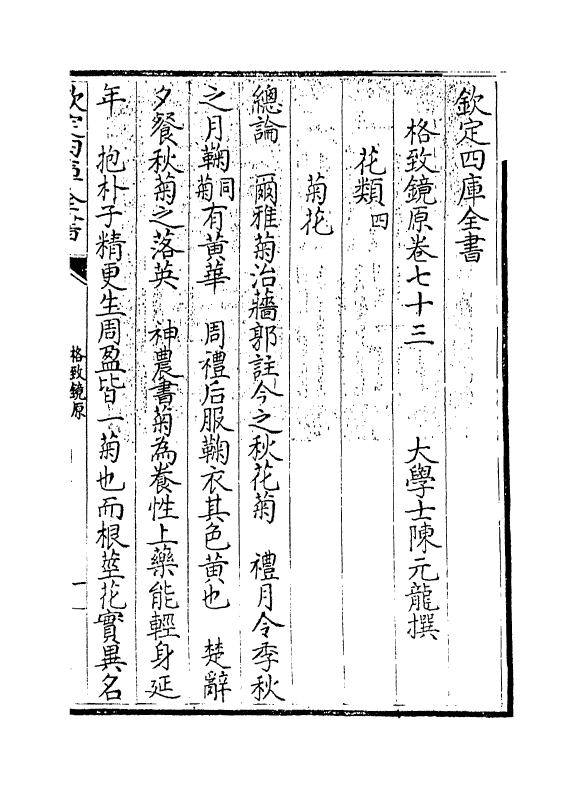 欽定四庫全書
格致鏡原卷七十三　大學士陳元龍撰
花類四
菊花
總論　爾雅菊治蘠郭註今之秋花菊　禮月令季秋
之月鞠同菊有黃華　周禮后服鞠衣其色黃也　楚辭
夕餐秋菊之落英　神農書菊為養性上藥能輕身延
年　抱朴子精更生周盈皆一菊也而根莖花實異名
欽定四庫全書
格致鏡原
一